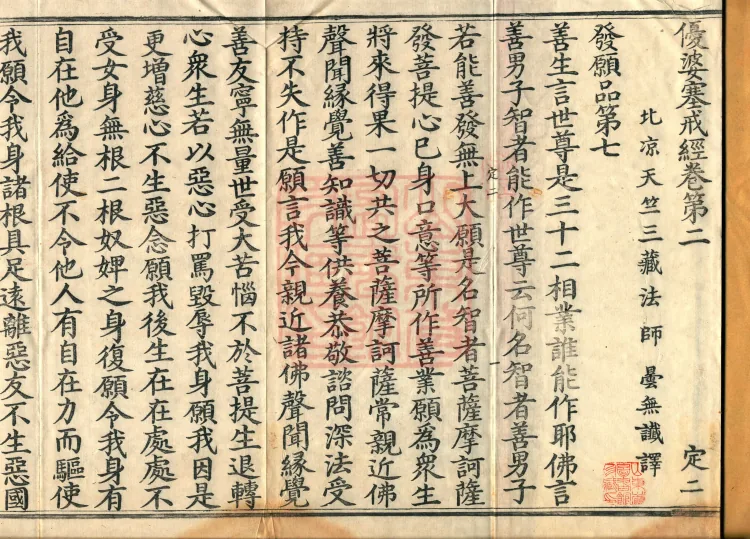 優婆塞戒經卷第二 定二
北凉天竺三藏法師曇無讖譯
發願品第七
善生言世尊是三十二相業誰能作耶佛言
善男子智者能作世尊云何名智者善男子
定二 一
若能善發無上大願是名智者菩薩摩訶薩
發菩提心已身口意等所作善業願爲衆生
將來得果一切共之菩薩摩訶薩常親近佛
聲聞緣覺善知識等供養恭敬諮問深法受
持不失作是願言我今親近諸佛聲聞緣覺
善友寧無量世受大苦惱不於菩提生退轉
心衆生若以惡心打罵毀辱我身願我因是
更增慈心不生惡念願我後生在在處處不
受女身無根二根奴婢之身復願令我身有
自在他爲給使不令他人有自在力而驅使
我願令我身諸根具足遠離惡友不生惡國